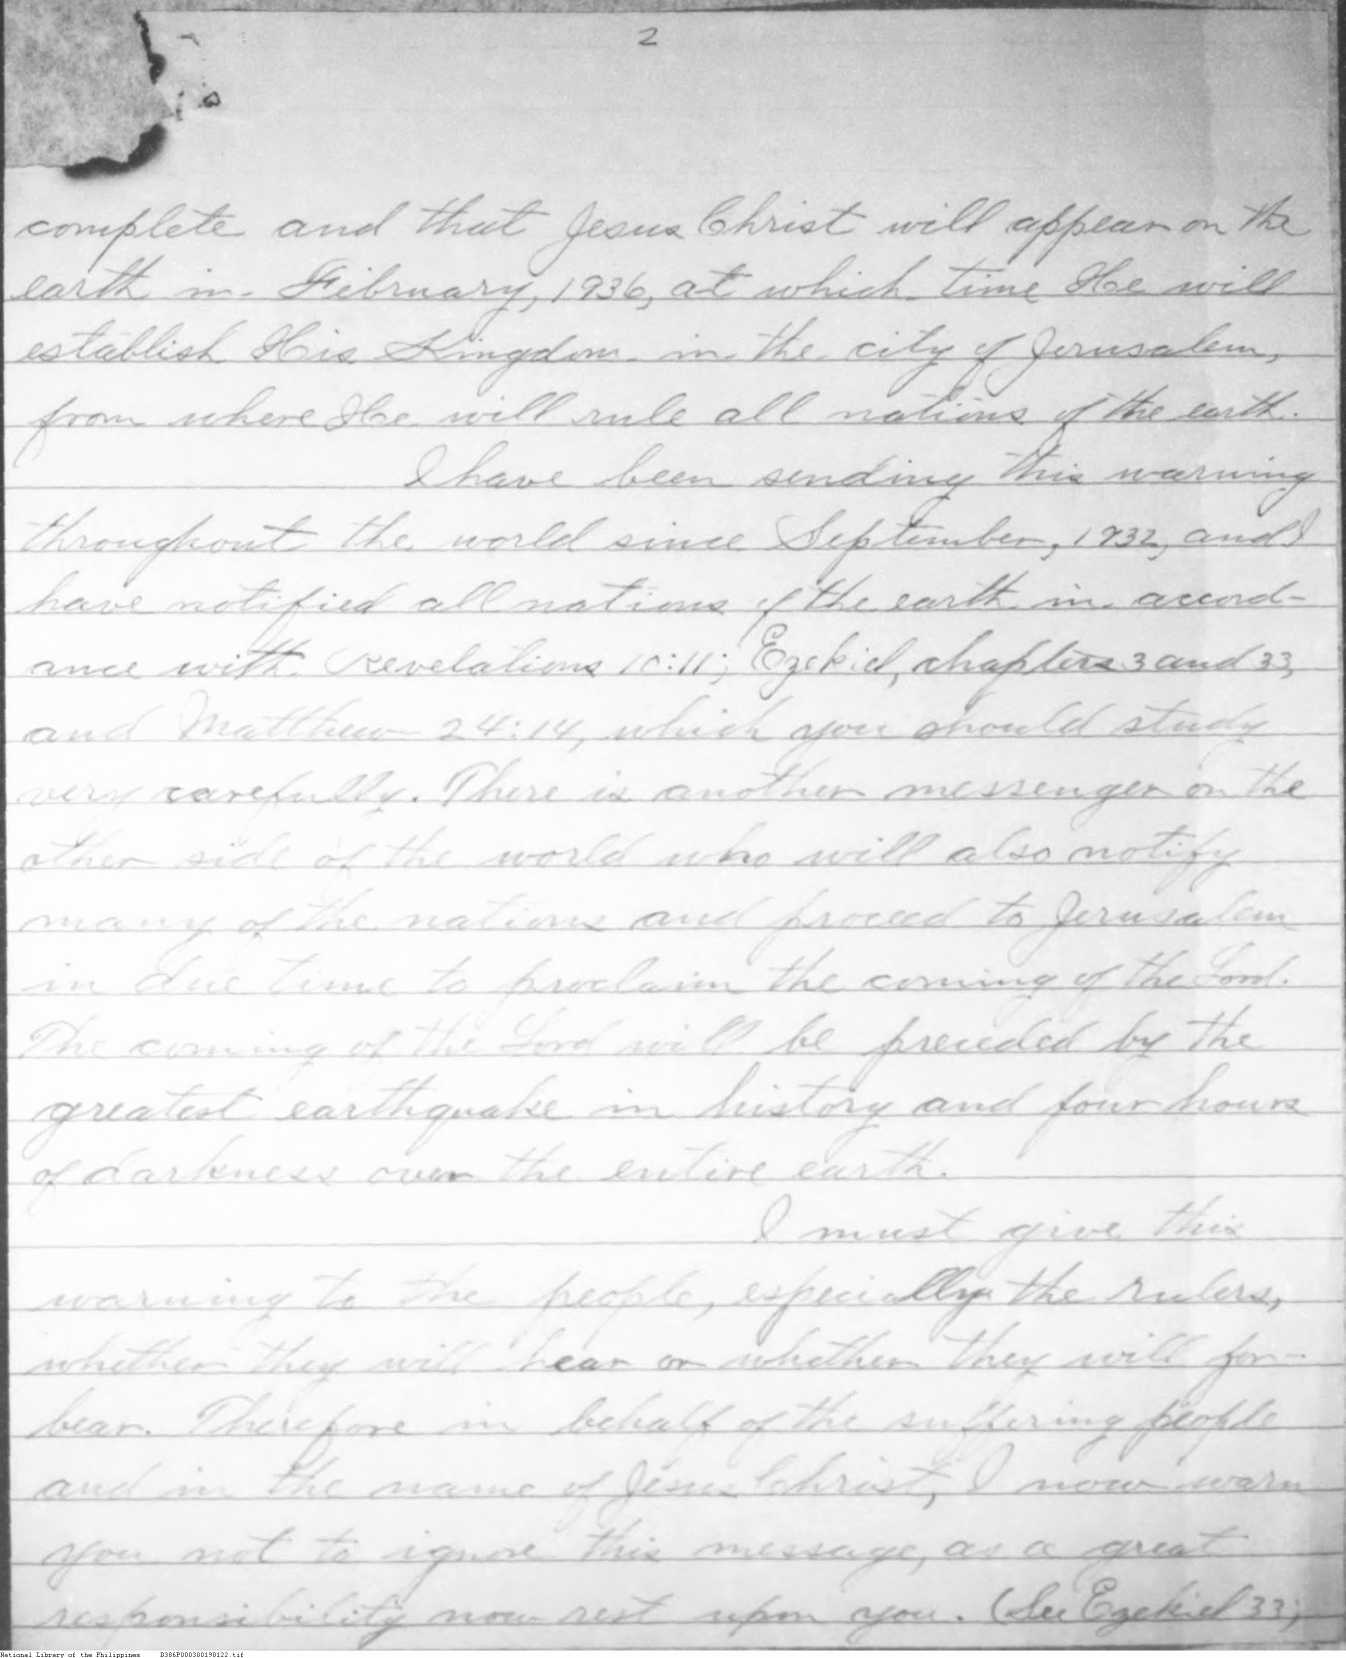 2
complete and that Jesus Christ will appear on the
earth in February, 1936, at which time He will
establish His Kingdom in the city of Jerusalem,
from where He will rule all nations of the earth.
I have been sending this warning
throughout the world since September, 1932, and I
have notified all nations of the earth in accord-
ance with Revelations 10:11; Ezekiel, chapters 3 and 33,
and Matthew 24:14, which you should study
very carefully. There is another messenger on the
other side of the world who will also notify
many of the nations and proceed to Jerusalem
in due time to proclaim the coming of the Lord.
The coming of the Lord will be preceded by the
greatest earthquake in history and four hours
of darkness over the entire earth.
I must give this
warning to the people, especially the rulers,
whether they will hear or whether they will for-
bear. Therefore in behalf of the suffering people
and in the name of Jesus Christ, I now warn
you not to ignore this message, as a great
responsibility now rest upon you. (See Ezekiel 33;
National Library of the Philippines B386P000380198122.tif